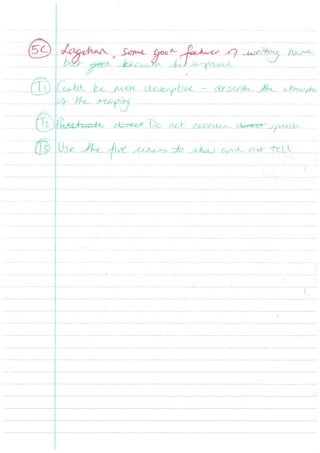 5C , some good features of writing have
been because be improven
T1 Could be more descriptive - describe the
of the
T2 Punctuate direct Do not overuse direct speech
T3 Use the five senses to show and not tell